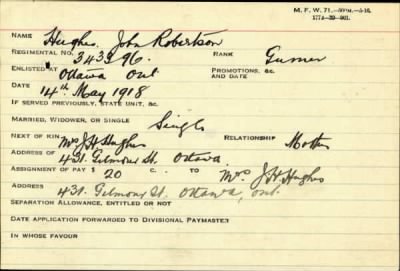 M. F. W. 71.—50M.—5-16.
1772-39-901.
NAME Hughes. John Robertson
REGIMENTAL NO. 343296. RANK Gunner
ENLISTED AT Ottawa Ont PROMOTIONS, &C. AND DATE
DATE 14th May 1918
IF SERVED PREVIOUSLY, STATE UNIT, &C.
MARRIED, WIDOWER, OR SINGLE Single
NEXT OF KIN Mrs J H Hughes RELATIONSHIP Mother
ADDRESS OF 431. Gilmour St. Ottawa.
ASSIGNMENT OF PAY $ 20 C. TO Mrs. J H Hughes
ADDRESS 431. Gilmour St. Ottawa, Ont.
SEPARATION ALLOWANCE, ENTITLED OR NOT
DATE APPLICATION FORWARDED TO DIVISIONAL PAYMASTER
IN WHOSE FAVOUR